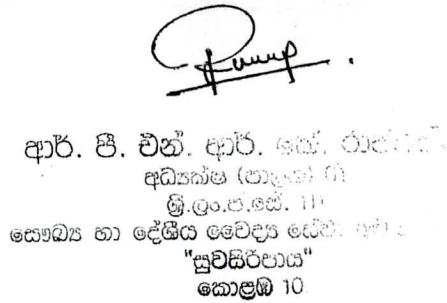 ආර්. පී. එන්. ආර්. කේ.
අධ්‍යක්ෂ (පාලන)
ශ්‍රී.ලං.ප.සේ.
සෞඛ්‍ය හා දේශීය වෛද්‍ය සේවා
"සුවසිරිපාය"
කොළඹ 10